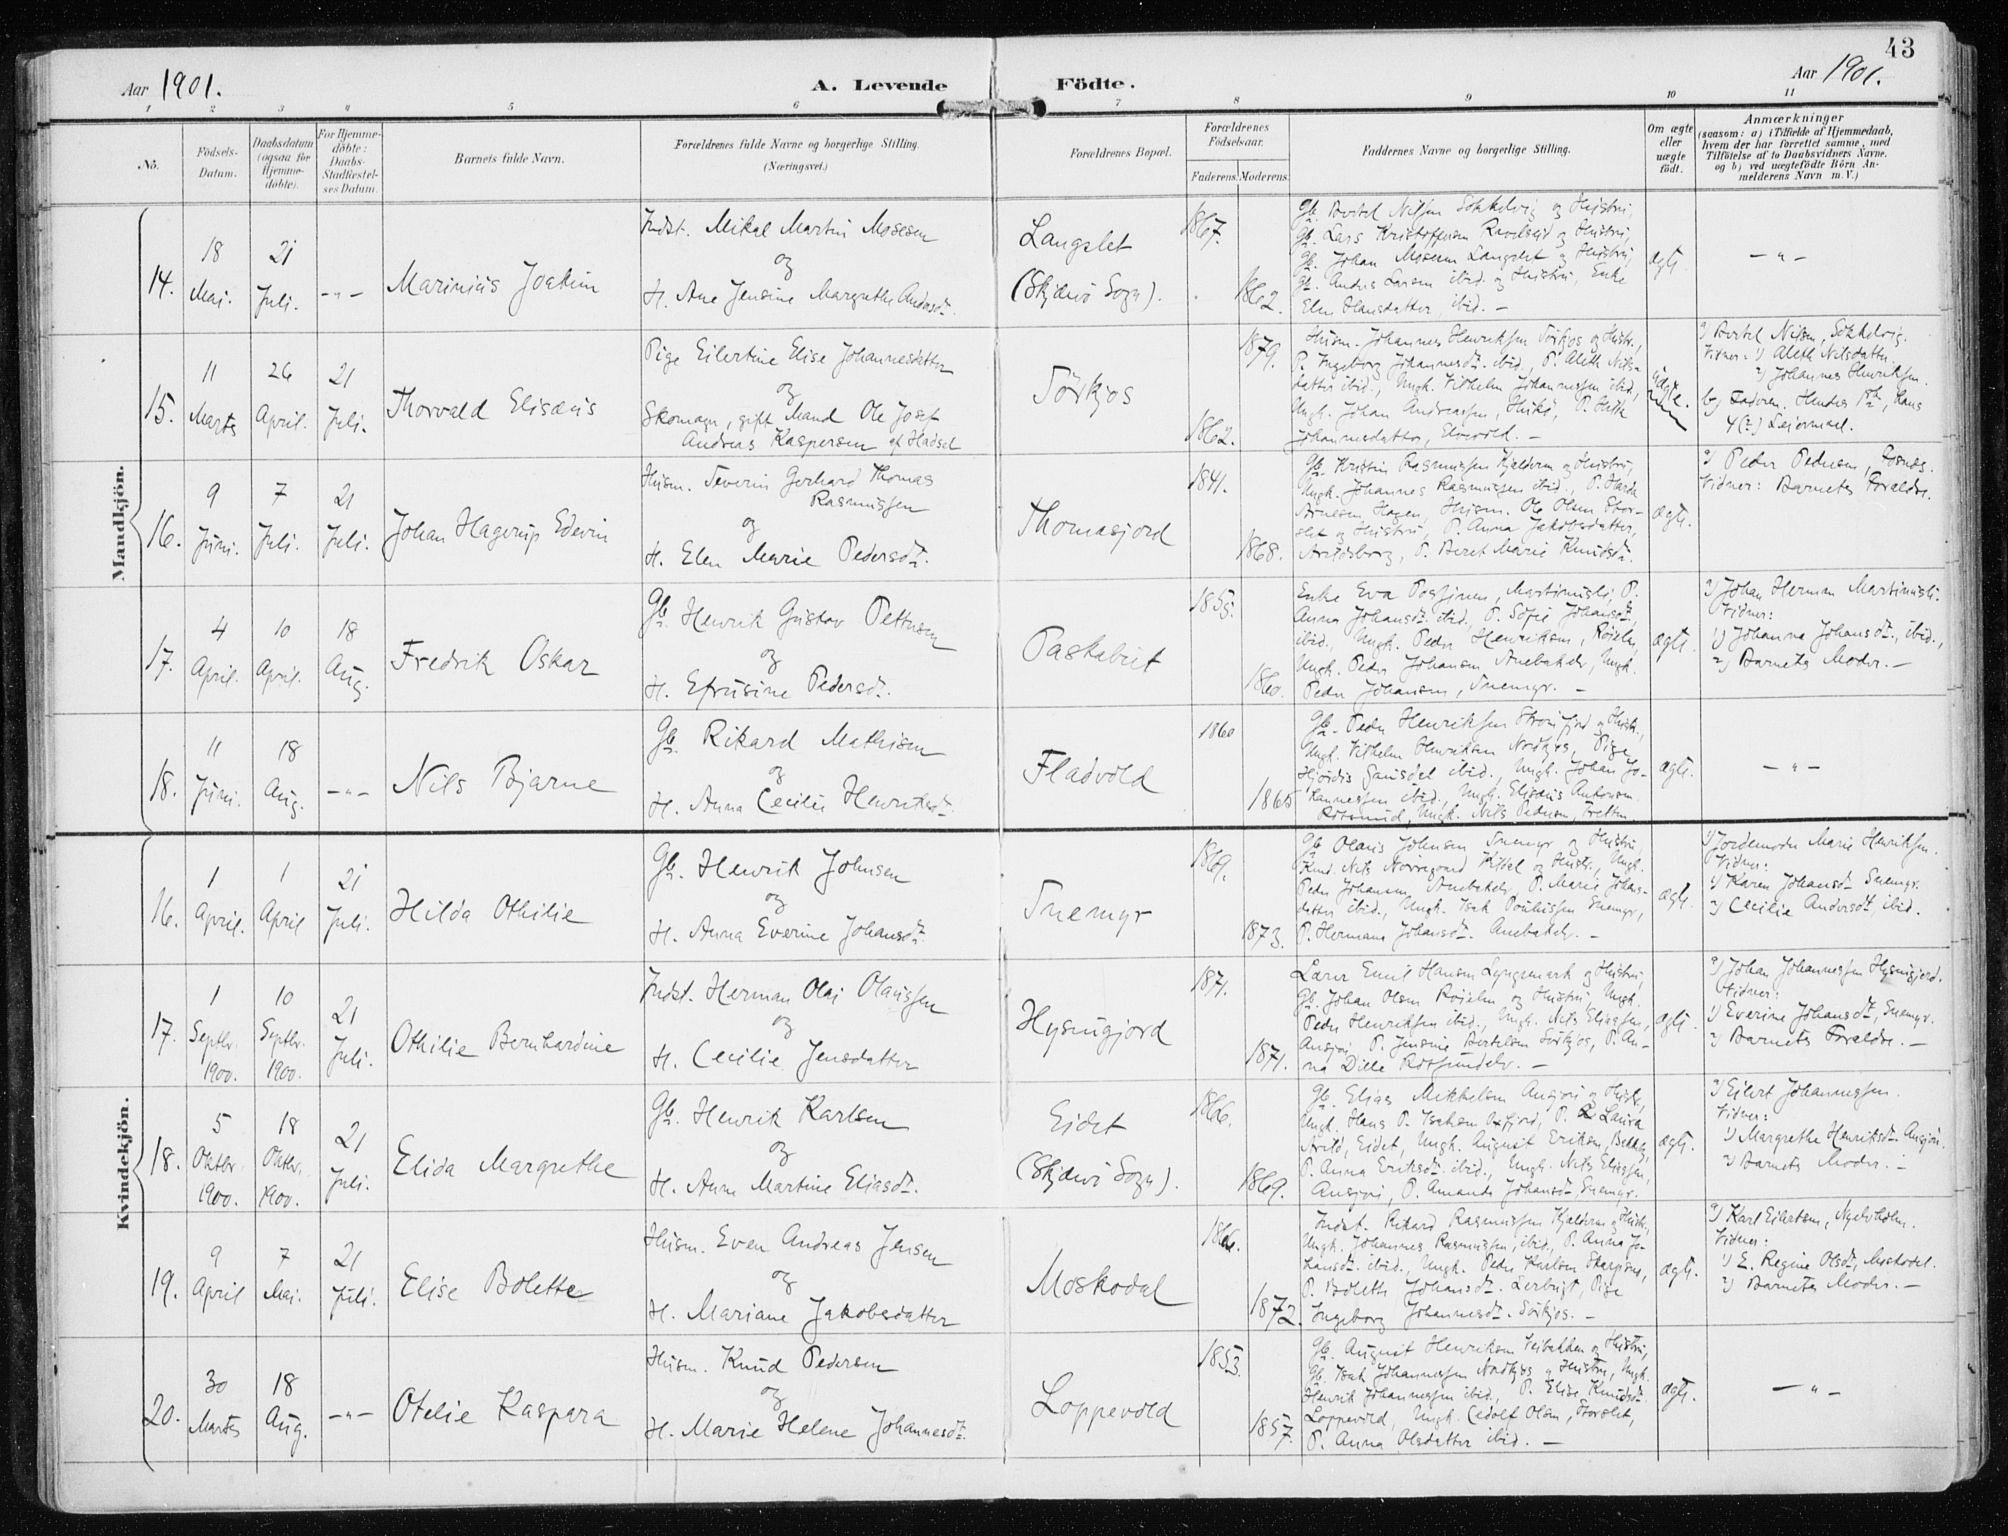 43
Aar 1901.
A. Levende Födte.
Aar 1901.
1 2 3 4 5 6 7 8 9 10 11
No.
Födsels-Datum.
Daabsdatum (ogsaa for Hjemme-döbte).
For Hjemme-döbte: Daabs-Stadfæstel-ses Datum.
Barnets fulde Navn.
Forældrenes fulde Navne og borgerlige Stilling.
(Næringsvei.)
Forældrenes Bopæl.
Forældrenes Födselsaar.
Faderens. Moderens.
Faddernes Navne og borgerlige Stilling.
Om ægte eller uægte födt.
Anmærkninger
(saasom: a) i Tilfælde af Hjemmedaab,
hvem der har forrettet samme, med
Tilföielse af to Daabsvidners Navne,
og b) ved uægtefödte Börn An-
melderens Navn m. V.)
Mandkjön.
14.
18 Mai.
21 Juli.
-"-
Marinius Joakim
Indst. Mikal Martin Mosesen
og
H. Ane Jensine Margrethe Andersdr.
Langslet
(Skjærvö Sogn).
1867.
1862.
Gb. Bertel Nilsen Sökkelvig og Hustru,
Gb. Lars Kristoffersen og Hustru,
Gb. Johan Mosesen Langslet og Hustru,
Gb. Anders Larsen ibid. og Hustru, Enke
Elen Hansdatter, ibid. —
ægte.
-"-
15.
11 Marts
26 April.
21 Juli.
Thorvald Elisæus
Pige Eilertine Elise Johannesdatter
og
Skomager, gift Mand Ole Josef
Andreas Kaspersen af Hadsel
Sörkjos
1879.
1862.
Husm. Johannes Henriksen Sörkjos og Hustr.,
P. Ingeborg Johannesdr. ibid., P. Aleth Nils-
datter ibid., Ungk. Vilhelm Johannessen ibid.,
Ungk. Johan Andreassen, P.
Johannesdatter, Elvevold. —
uægte.
a) Bertel Nilsen, Sökkelvig.
Vidner: 1) Aleth Nilsdatter.
2) Johannes Henriksen.
b) Faderen. Hendes 1ste, hans
4(?) Leiermaal.
16.
9 Juni.
7 Juli.
21 Juli.
Johan Hagerup Edevin
Husm. Severin Gerhard Thomas
Rasmussen
og
H. Elen Marie Pedersdr.
Thomasjord
1841.
1868.
Gb. Kristin Rasmussen Kjelderen og Hustru,
Ungk. Johannes Rasmussen ibid., P.
Hagen, Husm. Ole Olsen Stor-
slet og Hustru, P. Anna Jakobsdatter,
P. Beret Marie Knudsdr.
ægte.
a) Peder Pedersen,
Vidner: Barnets Forældre.
17.
4 April.
10 April.
18 Aug.
Fredrik Oskar
Gb. Henrik Gustav Pettersen
og
H. Efrusine Pedersdr.
Paskabut
1855.
1860.
Enke Eva P.
Anna Johansdr. ibid., P. Sofie Johansdr.,
ibid., Ungk. Peder Henriksen, Röieln,
Ungk. Peder Johansen Anebakdr, Ungk.
Peder Johansen, Snemyr. —
ægte.
a) Johan Herman
Vidner:
1) Johanna Johansdr., ibid.,
2) Barnets Moder. —
18.
11 Juni.
18 Aug.
-"-
Nils Bjarne
Gb. Rikard Mathisen
og
H. Anna Cecilie Henriksdr.
Fladvold
1860
1865
Gb. Peder Henriksen og Hustr.,
Ungk. Vilhelm Henriksen Nordkjos, Pige
Hjördis ibid., Ungk. Johan Jo-
hannessen ibid., Ungk. Elisæus Antonsen
Rotsund, Ungk. Nils Pedersen, Tretten
ægte.
-"-
Kvindekjön.
16.
1 April.
1 April
21 Juli.
Hilda Othilie
Gb. Henrik Johnsen
og
H. Anna Everine Johansdr.
Snemyr
1869.
1873.
Gb. Olaus Johnsen Snemyr og Hustru,
Nils og Hustr., Ungk.
Peder Johansen, Anebakdr, P. Marie Johans-
datter ibid., Ungk. Isak Snemyr,
P. Hermana Johansdr. Anebakdr. —
ægte.
a) Jordemoder Marie Henriksen.
Vidner:
1) Karen Johansdr. Snemyr.
2) Cecilie Andersdr. ibid.
17.
1 Septbr. 1900.
10 Septbr. 1900.
21 Juli.
Othilie Bernhardine
Indst. Herman Olai Olaussen
og
H. Cecilie Jensdatter
Hysingjord
1871.
1871.
Lærer Emil Hansen Lyngsmark og Hustru,
Gb. Johan Olsen Röieln og Hustru, Ungk.
Peder Henriksen ibid., Ungk. Nils Eliassen,
Ansjöi, P. Jensine Bertelsen Sörkjos, P. An-
na Dille —
ægte.
a) Johan Johannessen Hysingjord.
Vidner:
1) Everine Johansdr., Snemyr.
2) Barnets Forældre. —
18.
5 Oktbr. 1900.
18 Oktbr. 1900.
21 Juli.
Elida Margrethe
Gb. Henrik Karlsen
og
H. Anne Martine Eliasdr.
Eidet
(Skjærvö Sogn).
1866.
1869.
Gb. Elias Mikkelsen Ansjöi og Hustr.,
Ungk. Hans P. Isaksen Oxfjord, P. Laura
Arild, Eidet, Ungk. August Eriksen,
P. Anna Eriksdr. ibid., Ungk. Nils Eliassen,
Ansjöi, P. Amanda Johansdr. Snemyr.
ægte.
a) Eilert Johannessen.
Vidner:
1) Margrethe Henriksdr. Ansjöi.
2) Barnets Moder. —
19.
9 April
7 Mai.
21 Juli.
Elise Bolette
Husm. Even Andreas Jensen
og
H. Mariane Jakobsdatter
Moskodal
1866.
1872.
Indst. Rikard Rasmussen Kjelderen og Hustr.,
Ungk. Johannes Rasmussen, ibid., P. Anna Jo-
hansdr. ibid., Ungk. Peder Karlsen
P. Bolette Johansdr. Lerbugt, Pige
Ingeborg Johannesdr. Sörkjos. —
ægte.
a) Karl Eilertsen, Nyelvholm.
Vidner:
1) E. Regine Olsdr., Moskodal.
2) Barnets Moder. —
20.
30 Marts
18 Aug.
-"-
Otelie Kaspara
Husm. Knud Pedersen
og
H. Marie Helene Johannesdr.
Loppevold
1853.
1857.
Gb. August Henriksen og Hustru,
Gb. Isak Johannessen Nordkjos og Hustru, Ungk.
Henrik Johannessen ibid., P. Elise Knudsdr.
Loppevold, Ungk. Olsen, Storslet,
P. Anna Olsdatter ibid. —
ægte.
-"-